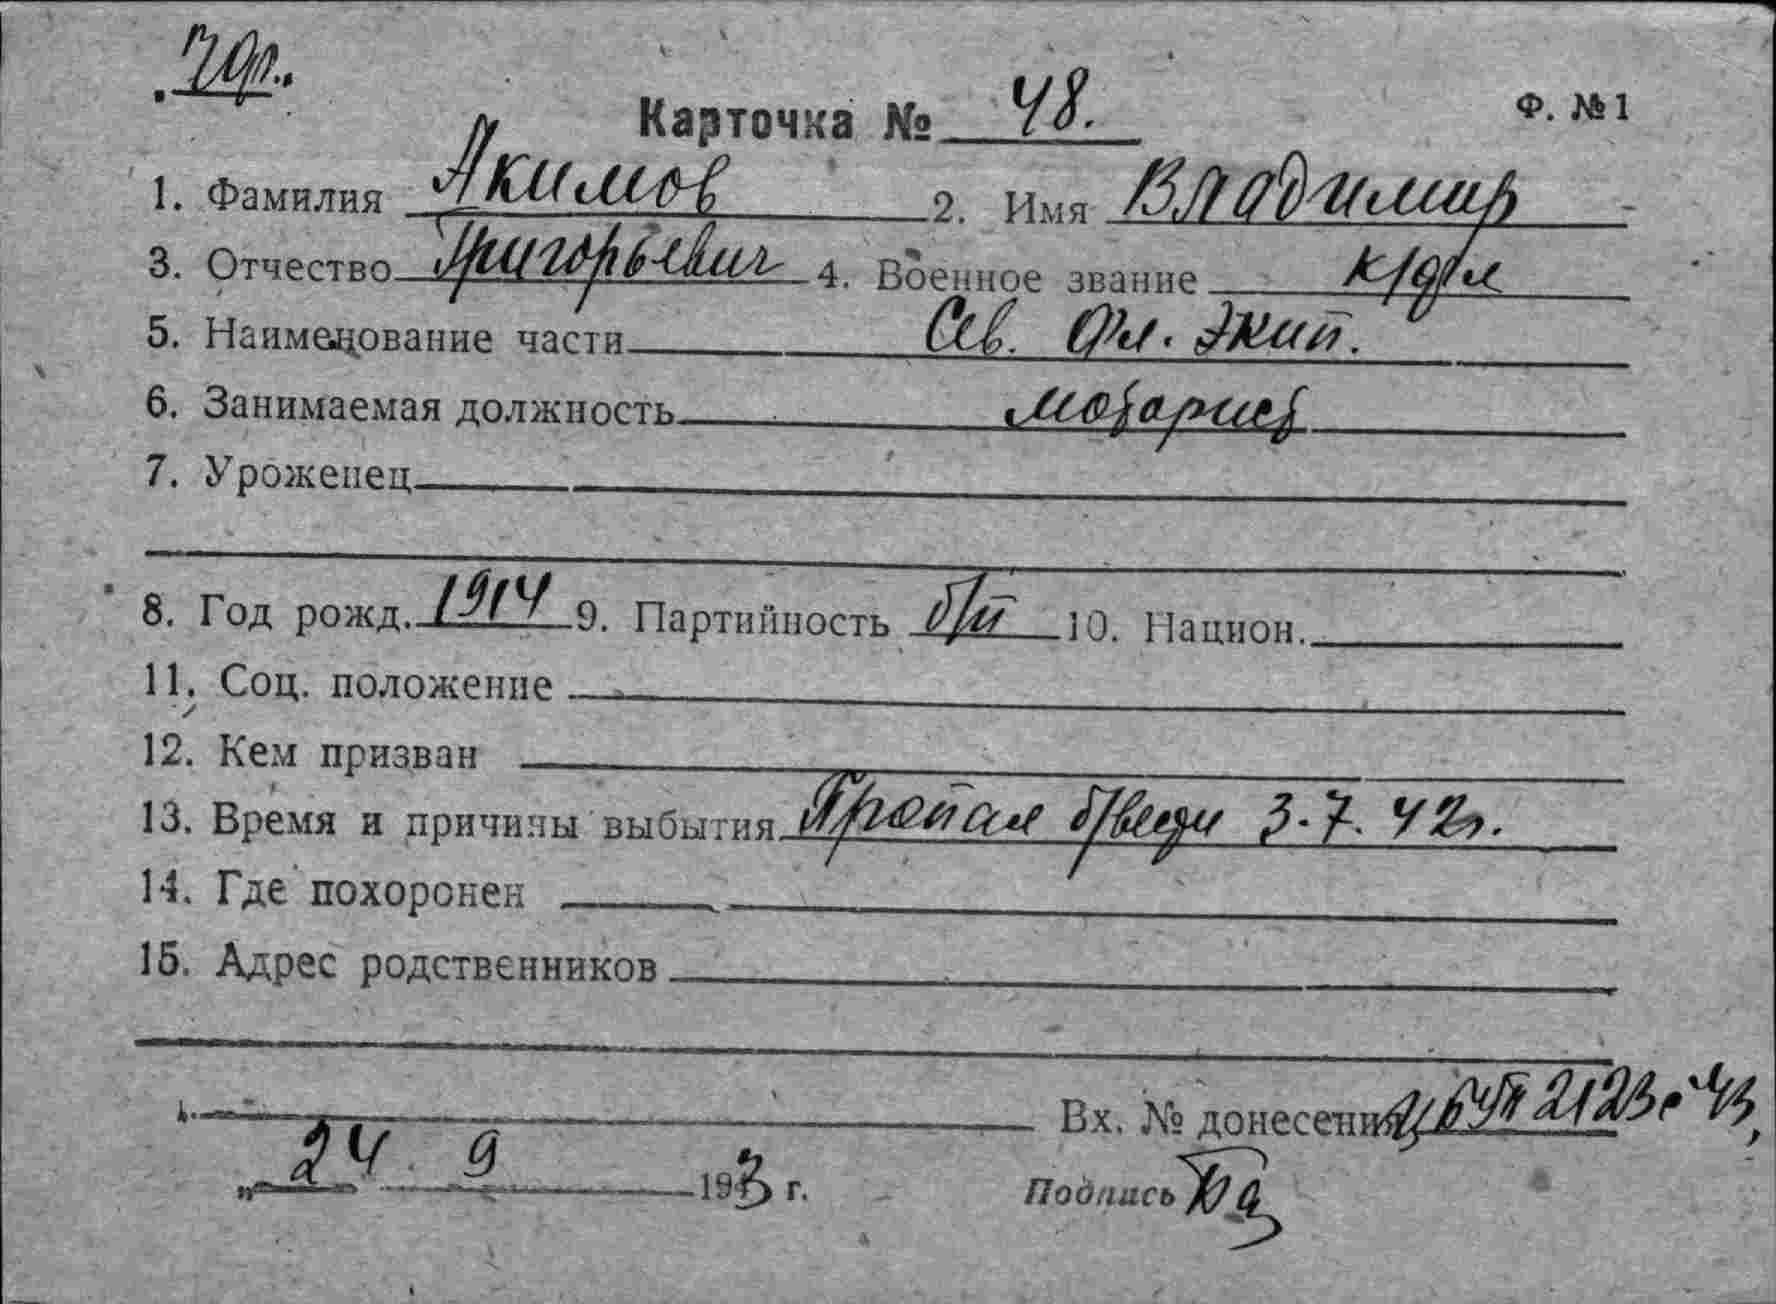 Карточка № 48. Ф. №1
1. Фамилия Акимов 2. Имя Владимир
3. Отчество Григорьевич 4. Военное звание к/фл
5. Наименование части Сев. Фл. Экип.
6. Занимаемая должность моторист
7. Уроженец
8. Год рожд. 1914 9. Партийность б/п 10. Национ.
11. Соц. положение
12. Кем призван
13. Время и причины выбытия Пропал б/вести 3.7.42г.
14. Где похоронен
15. Адрес родственников
Вх. № донесения 2123с 43
„ 24 9 1943 г. Подпись